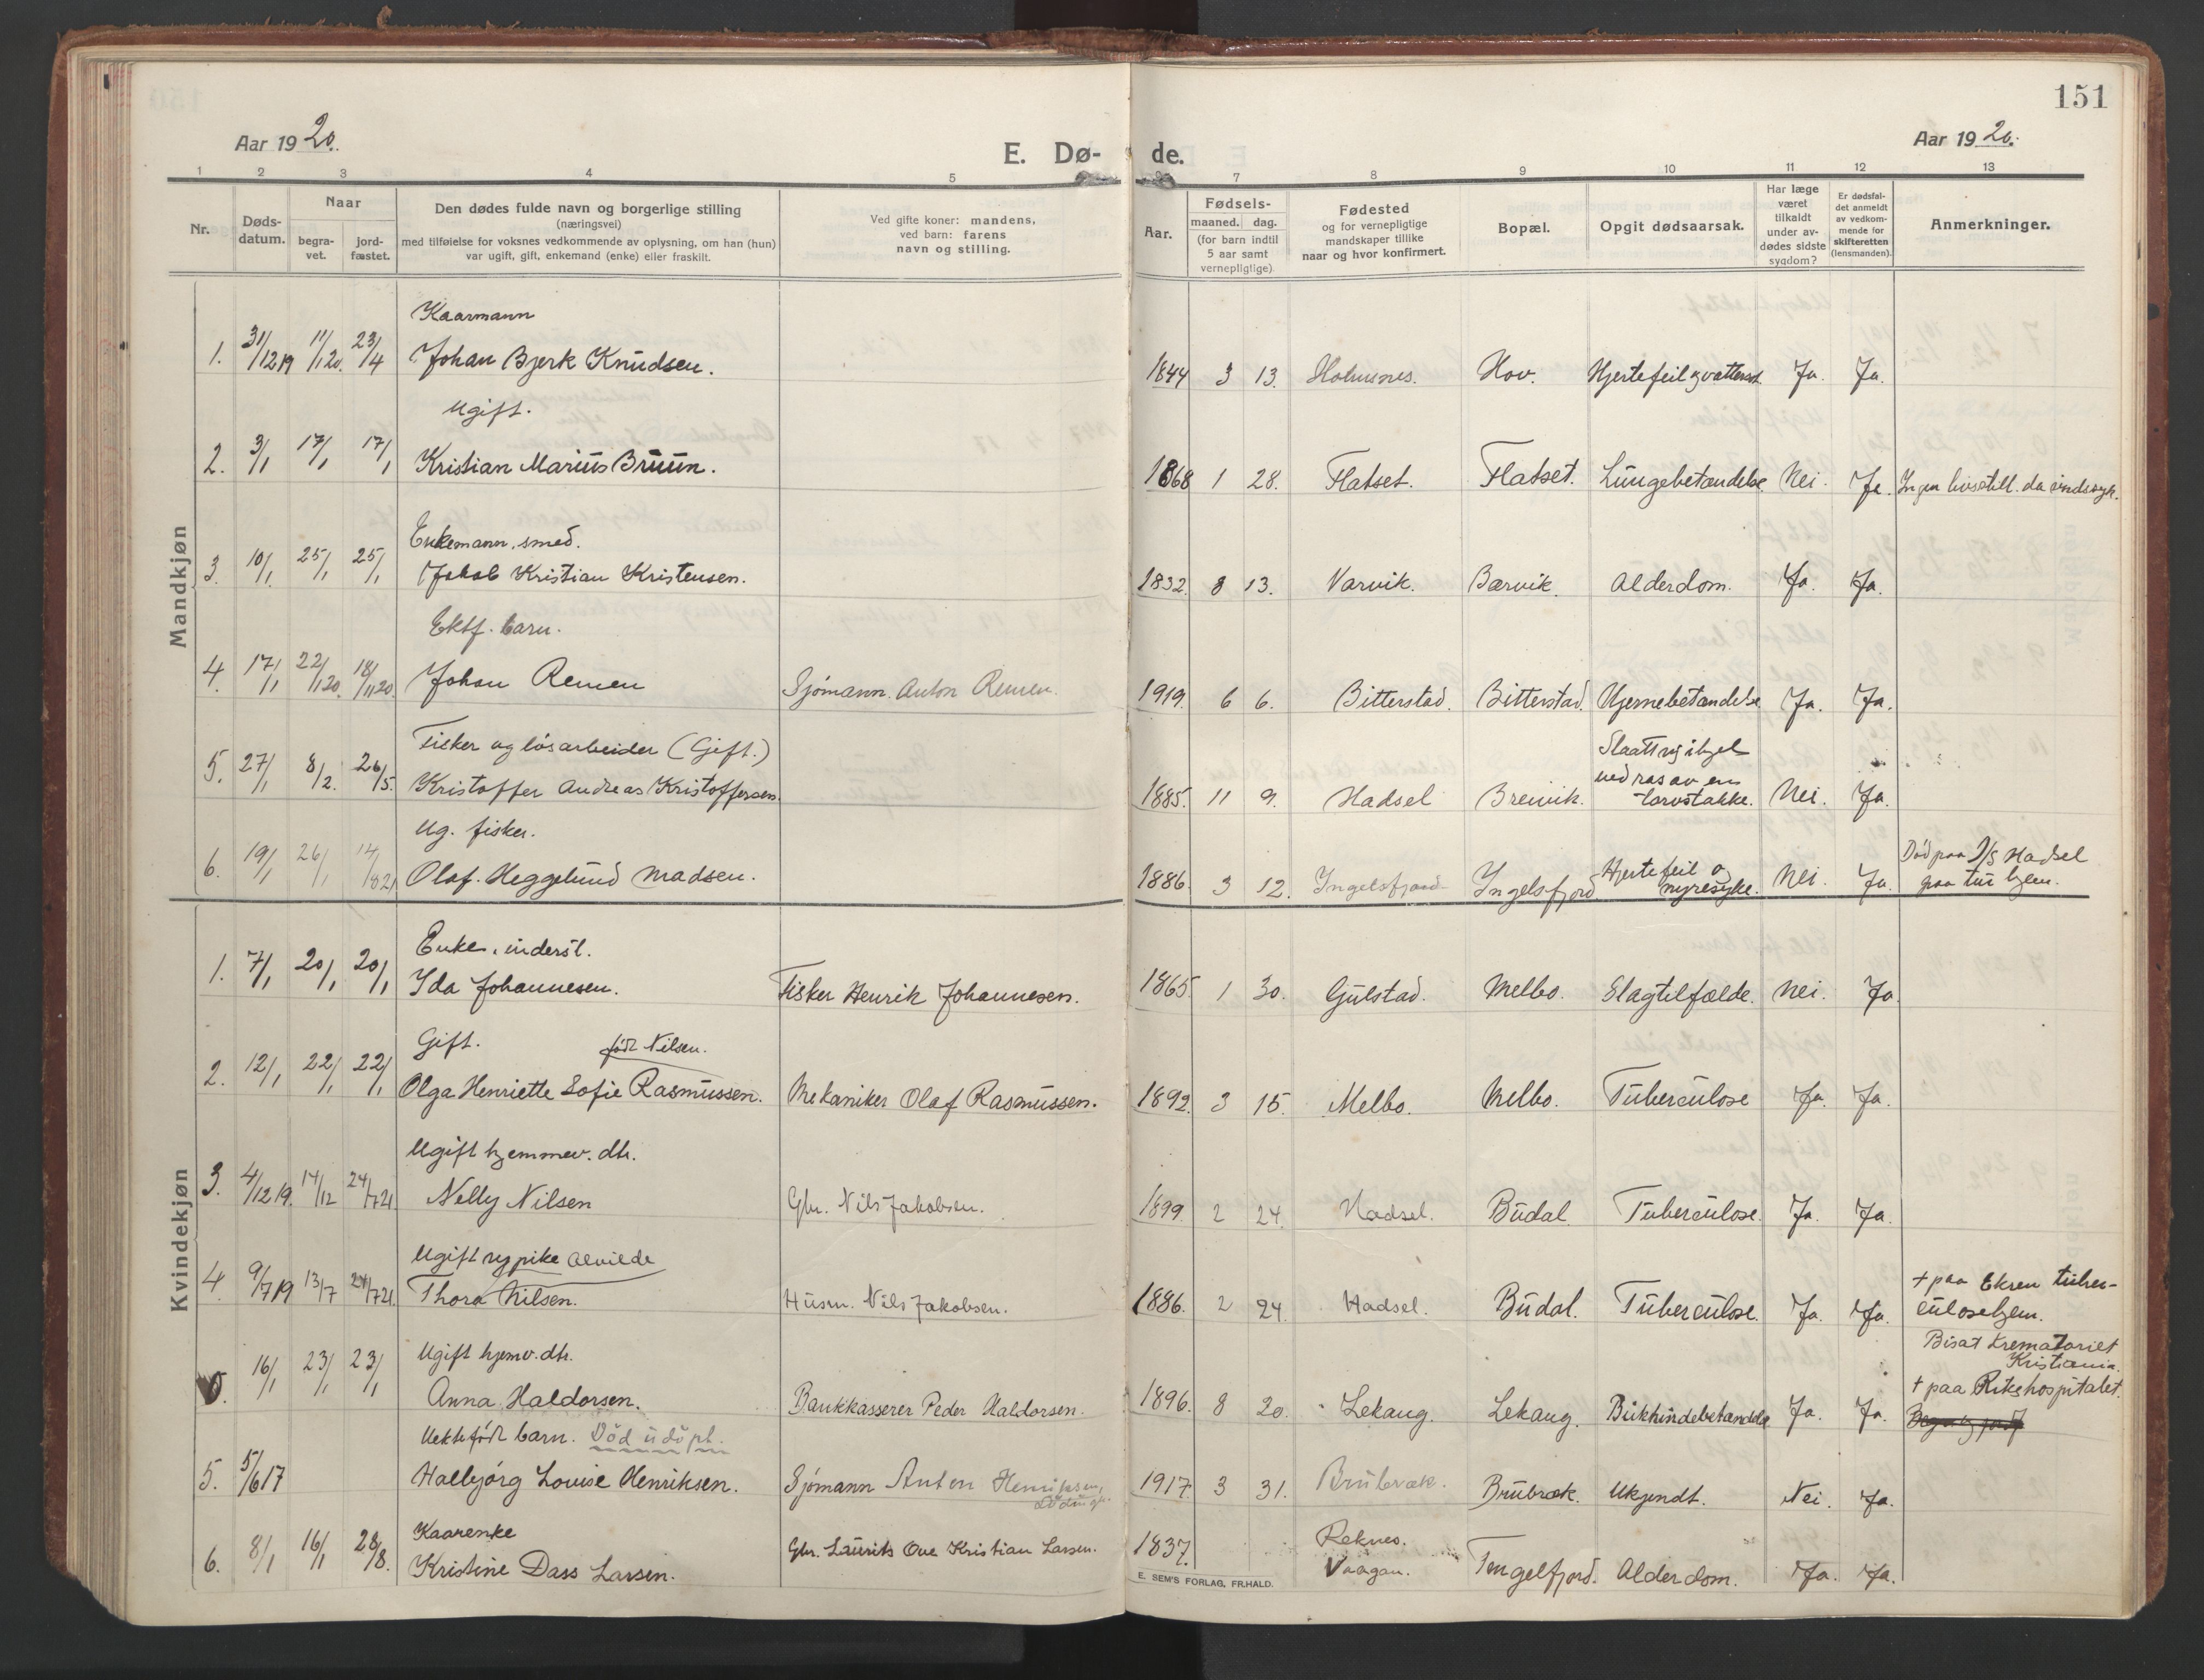 151
Aar 1920.
E. Dø- de.
Aar 1920.
1 2 3 4 5 7 8 9 10 11 12 13
Nr.
Døds-
datum.
Naar
begra-
vet.
jord-
fæstet.
Den dødes fulde navn og borgerlige stilling
(næringsvei)
med tilføielse for voksnes vedkommende av oplysning, om han (hun)
var ugift, gift, enkemand (enke) eller fraskilt.
Ved gifte koner: mandens,
ved barn: farens
navn og stilling.
Aar.
Fødsels-
maaned. dag.
(for barn indtil
5 aar samt
vernepligtige)
Fødested
og for vernepligtige
mandskaper tillike
naar og hvor konfirmert.
Bopæl.
Opgit dødsaarsak.
Har læge
været
tilkaldt
under av-
dødes sidste
sygdom?
Er dødsfal-
det anmeldt
av vedkom-
mende for
skifteretten
(lensmanden).
Anmerkninger.
Mandkjøn
Kaarmann
1. 31/12 19 11/1 20. 23/4 Johan Bjerk Knudsen. 1844 3 13. Holmsnes. Hov. Hjertefeil og vattersot. Ja. Ja.
Ugift.
2. 3/1 17/1 17/1 Kristian Marius Bruun. 1868 1 28. Flatset. Flatset. Lungebetændelse. Nei. Ja. Ingen da sindssyk.
Enkemann, smed.
3. 10/1 25/1 25/1 Jakob Kristian Kristensen. 1832. 8 13. Varvik. Barvik. Alderdom. Ja. Ja.
Ektf. barn.
4. 17/1 22/1 20. 18/11 20. Johan Remen Sjømann Anton Remen. 1919. 6 6. Bitterstad. Bitterstad. Hjernebetændelse Ja. Ja.
Fisker og løsarbeider (Gift.)
5. 27/1 8/2. 26/5. Kristoffer Andreas Kristoffersen. 1885. 11 9. Hadsel Breivik. Slaatt sig ihjel
ved ras av en
torvstakke. Nei. Ja.
Ug. fisker.
6. 19/1 26/1 14/8 21 Olaf Heggelund Madsen. 1886. 3 12. Ingelsfjord Ingelsfjord. Hjertefeil og
nyresyke. Nei. Ja. Død paa D/S Hadsel
paa tur hjem.
Kvindekjøn
Enke, inderst.
1. 7/1 20/1 20/1 Ida Johannesen. Fisker Henrik Johannesen. 1865. 1 30. Gulstad. Melbo. Slagtilfælde. Nei. Ja.
Gift. født Nilsen.
2. 12/1 22/1 22/1 Olga Henriette Sofie Rasmussen. Mekaniker Olaf Rasmussen. 1892. 3 15. Melbo. Melbo. Tuberculose Ja. Ja.
Ugift hjemmev. dtr.
3. 4/12 19. 14/12 24/7 21. Nelly Nilsen Gbr. Nils Jakobsen. 1899. 2 24. Hadsel. Budal. Tuberculose. Ja. Ja.
Ugift sypike Alvilde
4. 9/7 19 13/7 24/7 21. Thora Nilsen. Husm. Nils Jakobsen. 1886. 2 24. Hadsel. Budal. Tuberculose. Ja. Ja. + paa Ekren tuber-
culosehjem.
Ugift hjemv. dtr.
5. 16/1 23/1 23/1 Anna Haldorsen. Bankkasserer Peder Haldorsen. 1896. 8 20. Lekang. Lekang. Bukhindebetændelse Ja. Ja. Bisat Krematoriet
Kristiania.
+ paa Rikshospitalet.
Uektefødt barn. Död udöpt.
5. 5/6 17 Halbjørg Louise Henriksen. Sjømann Anton Henriksen, 1917. 3 31. Brubræk. Brubræk. Ukjendt. Nei. Ja.
Kaarenke
6. 8/1 16/1 28/8. Kristine Dass Larsen. Gbr. Laurits Ove Kristian Larsen. 1837. Reknes.
Vaagan. Tengelfjord. Alderdom. Ja. Ja.
E. SEM'S FORLAG, FR.HALD.